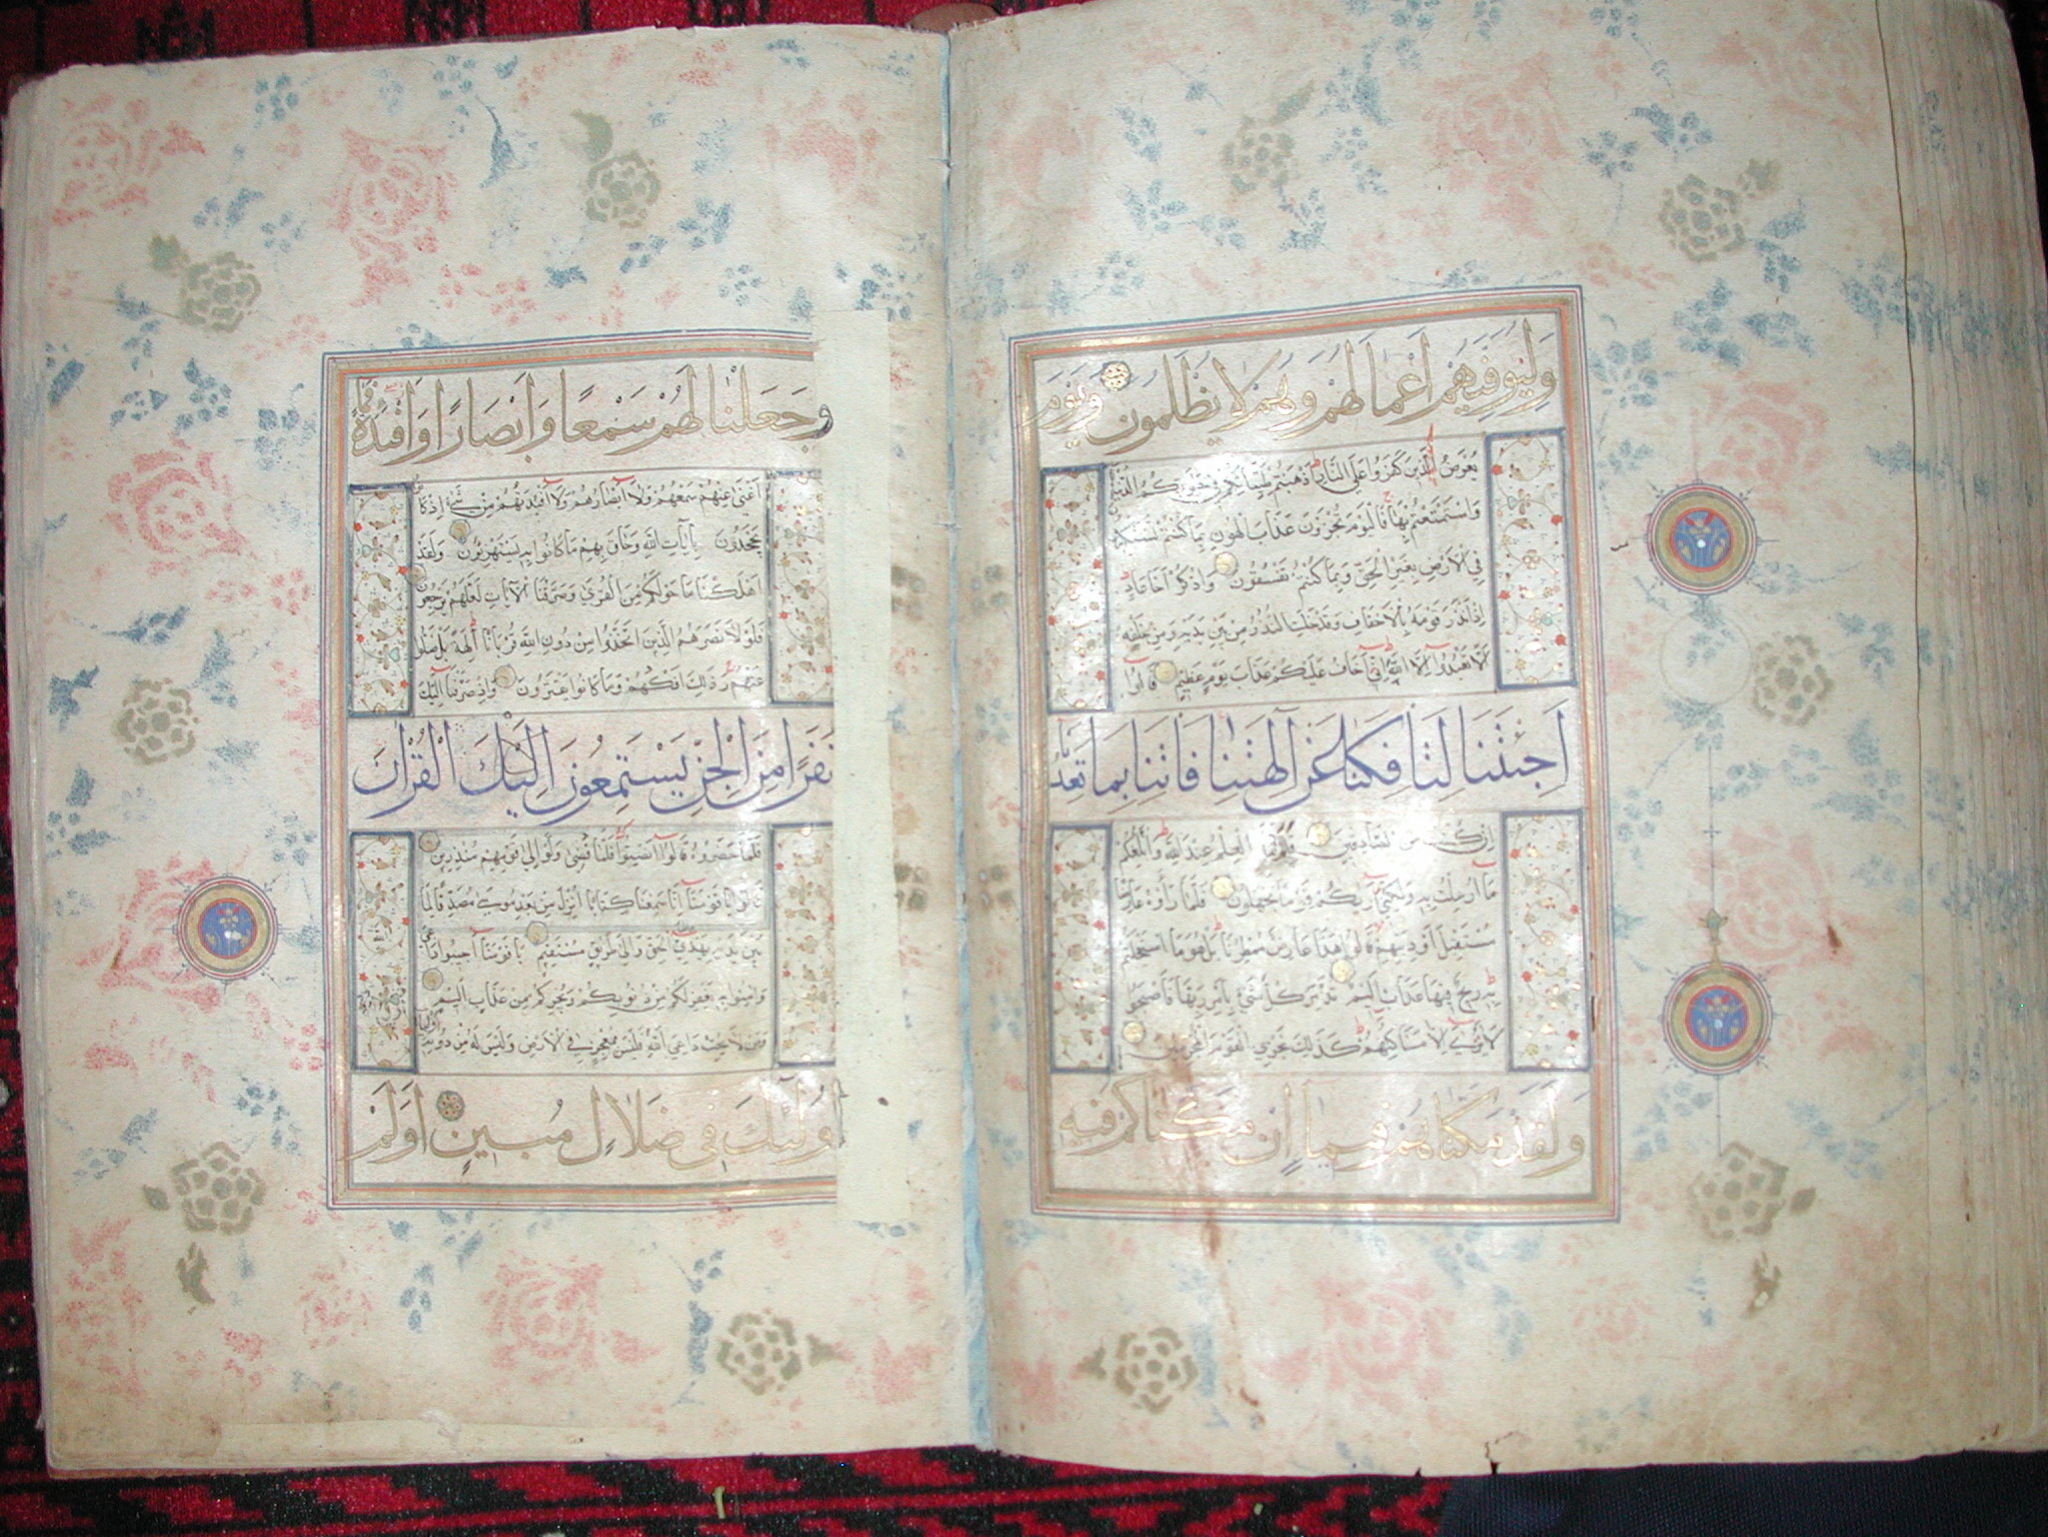 وَلِيُوَفِّيَهُمْ أَعْمَالَهُمْ وَهُمْ لَا يُظْلَمُونَ وَيَوْمَ
يُعْرَضُ الَّذِينَ كَفَرُوا عَلَى النَّارِ أَذْهَبْتُمْ طَيِّبَاتِكُمْ فِي حَيَوتِكُمُ الدُّنْيَا
وَاسْتَمْتَعْتُمْ بِهَا فَالْيَوْمَ تُجْزَوْنَ عَذَابَ الْهُونِ بِمَا كُنْتُمْ تَسْتَكْبِرُونَ
فِي الْأَرْضِ بِغَيْرِ الْحَقِّ وَبِمَا كُنْتُمْ تَفْسُقُونَ وَاذْكُرْ أَخَا عَادٍ
إِذْ أَنْذَرَ قَوْمَهُ بِالْأَحْقَافِ وَقَدْ خَلَتِ النُّذُرُ مِنْ بَيْنِ يَدَيْهِ وَمِنْ خَلْفِهِ
أَلَّا تَعْبُدُوا إِلَّا اللَّهَ إِنِّي أَخَافُ عَلَيْكُمْ عَذَابَ يَوْمٍ عَظِيمٍ قَالُوا
أَجِئْتَنَا لِتَأْفِكَنَا عَنْ آلِهَتِنَا فَأْتِنَا بِمَا تَعِدُنَا
إِنْ كُنْتَ مِنَ الصَّادِقِينَ قَالَ إِنَّمَا الْعِلْمُ عِنْدَ اللَّهِ وَأُبَلِّغُكُمْ
مَا أُرْسِلْتُ بِهِ وَلَكِنِّي أَرَيكُمْ قَوْمًا تَجْهَلُونَ فَلَمَّا رَأَوْهُ عَارِضًا
مُسْتَقْبِلَ أَوْدِيَتِهِمْ قَالُوا هَذَا عَارِضٌ مُمْطِرُنَا بَلْ هُوَ مَا اسْتَعْجَلْتُمْ
بِهِ رِيحٌ فِيهَا عَذَابٌ أَلِيمٌ تُدَمِّرُ كُلَّ شَيْءٍ بِأَمْرِ رَبِّهَا فَأَصْبَحُوا
لَا يُرَى إِلَّا مَسَاكِنُهُمْ كَذَلِكَ نَجْزِي الْقَوْمَ الْمُجْرِمِينَ
وَلَقَدْ مَكَّنَّاهُمْ فِيمَا إِنْ مَكَّنَّاكُمْ فِيهِ
وَجَعَلْنَا لَهُمْ سَمْعًا وَأَبْصَارًا وَأَفْئِدَةً فَمَا
أَغْنَى عَنْهُمْ سَمْعُهُمْ وَلَا أَبْصَارُهُمْ وَلَا أَفْئِدَتُهُمْ مِنْ شَيْءٍ إِذْ كَانُوا
يَجْحَدُونَ بِآيَاتِ اللَّهِ وَحَاقَ بِهِمْ مَا كَانُوا بِهِ يَسْتَهْزِؤُنَ وَلَقَدْ
أَهْلَكْنَا مَا حَوْلَكُمْ مِنَ الْقُرَى وَصَرَّفْنَا الْآيَاتِ لَعَلَّهُمْ يَرْجِعُونَ
فَلَوْلَا نَصَرَهُمُ الَّذِينَ اتَّخَذُوا مِنْ دُونِ اللَّهِ قُرْبَانًا آلِهَةً بَلْ ضَلُّوا
عَنْهُمْ وَذَلِكَ إِفْكُهُمْ وَمَا كَانُوا يَفْتَرُونَ وَإِذْ صَرَفْنَا إِلَيْكَ
نَفَرًا مِنَ الْجِنِّ يَسْتَمِعُونَ إِلَيْكَ الْقُرْآنَ
فَلَمَّا حَضَرُوهُ قَالُوا أَنْصِتُوا فَلَمَّا قُضِيَ وَلَّوْا إِلَى قَوْمِهِمْ مُنْذِرِينَ
قَالُوا يَا قَوْمَنَا إِنَّا سَمِعْنَا كِتَابًا أُنْزِلَ مِنْ بَعْدِ مُوسَى مُصَدِّقًا لِمَا
بَيْنَ يَدَيْهِ يَهْدِي إِلَى الْحَقِّ وَإِلَى طَرِيقٍ مُسْتَقِيمٍ يَا قَوْمَنَا أَجِيبُوا دَاعِيَ
وَآمِنُوا بِهِ يَغْفِرْ لَكُمْ مِنْ ذُنُوبِكُمْ وَيُجِرْكُمْ مِنْ عَذَابٍ أَلِيمٍ
وَمَنْ لَا يُجِبْ دَاعِيَ اللَّهِ فَلَيْسَ بِمُعْجِزٍ فِي الْأَرْضِ وَلَيْسَ لَهُ مِنْ دُونِهِ أَوْلِيَاءُ
أُولَئِكَ فِي ضَلَالٍ مُبِينٍ أَوَلَمْ